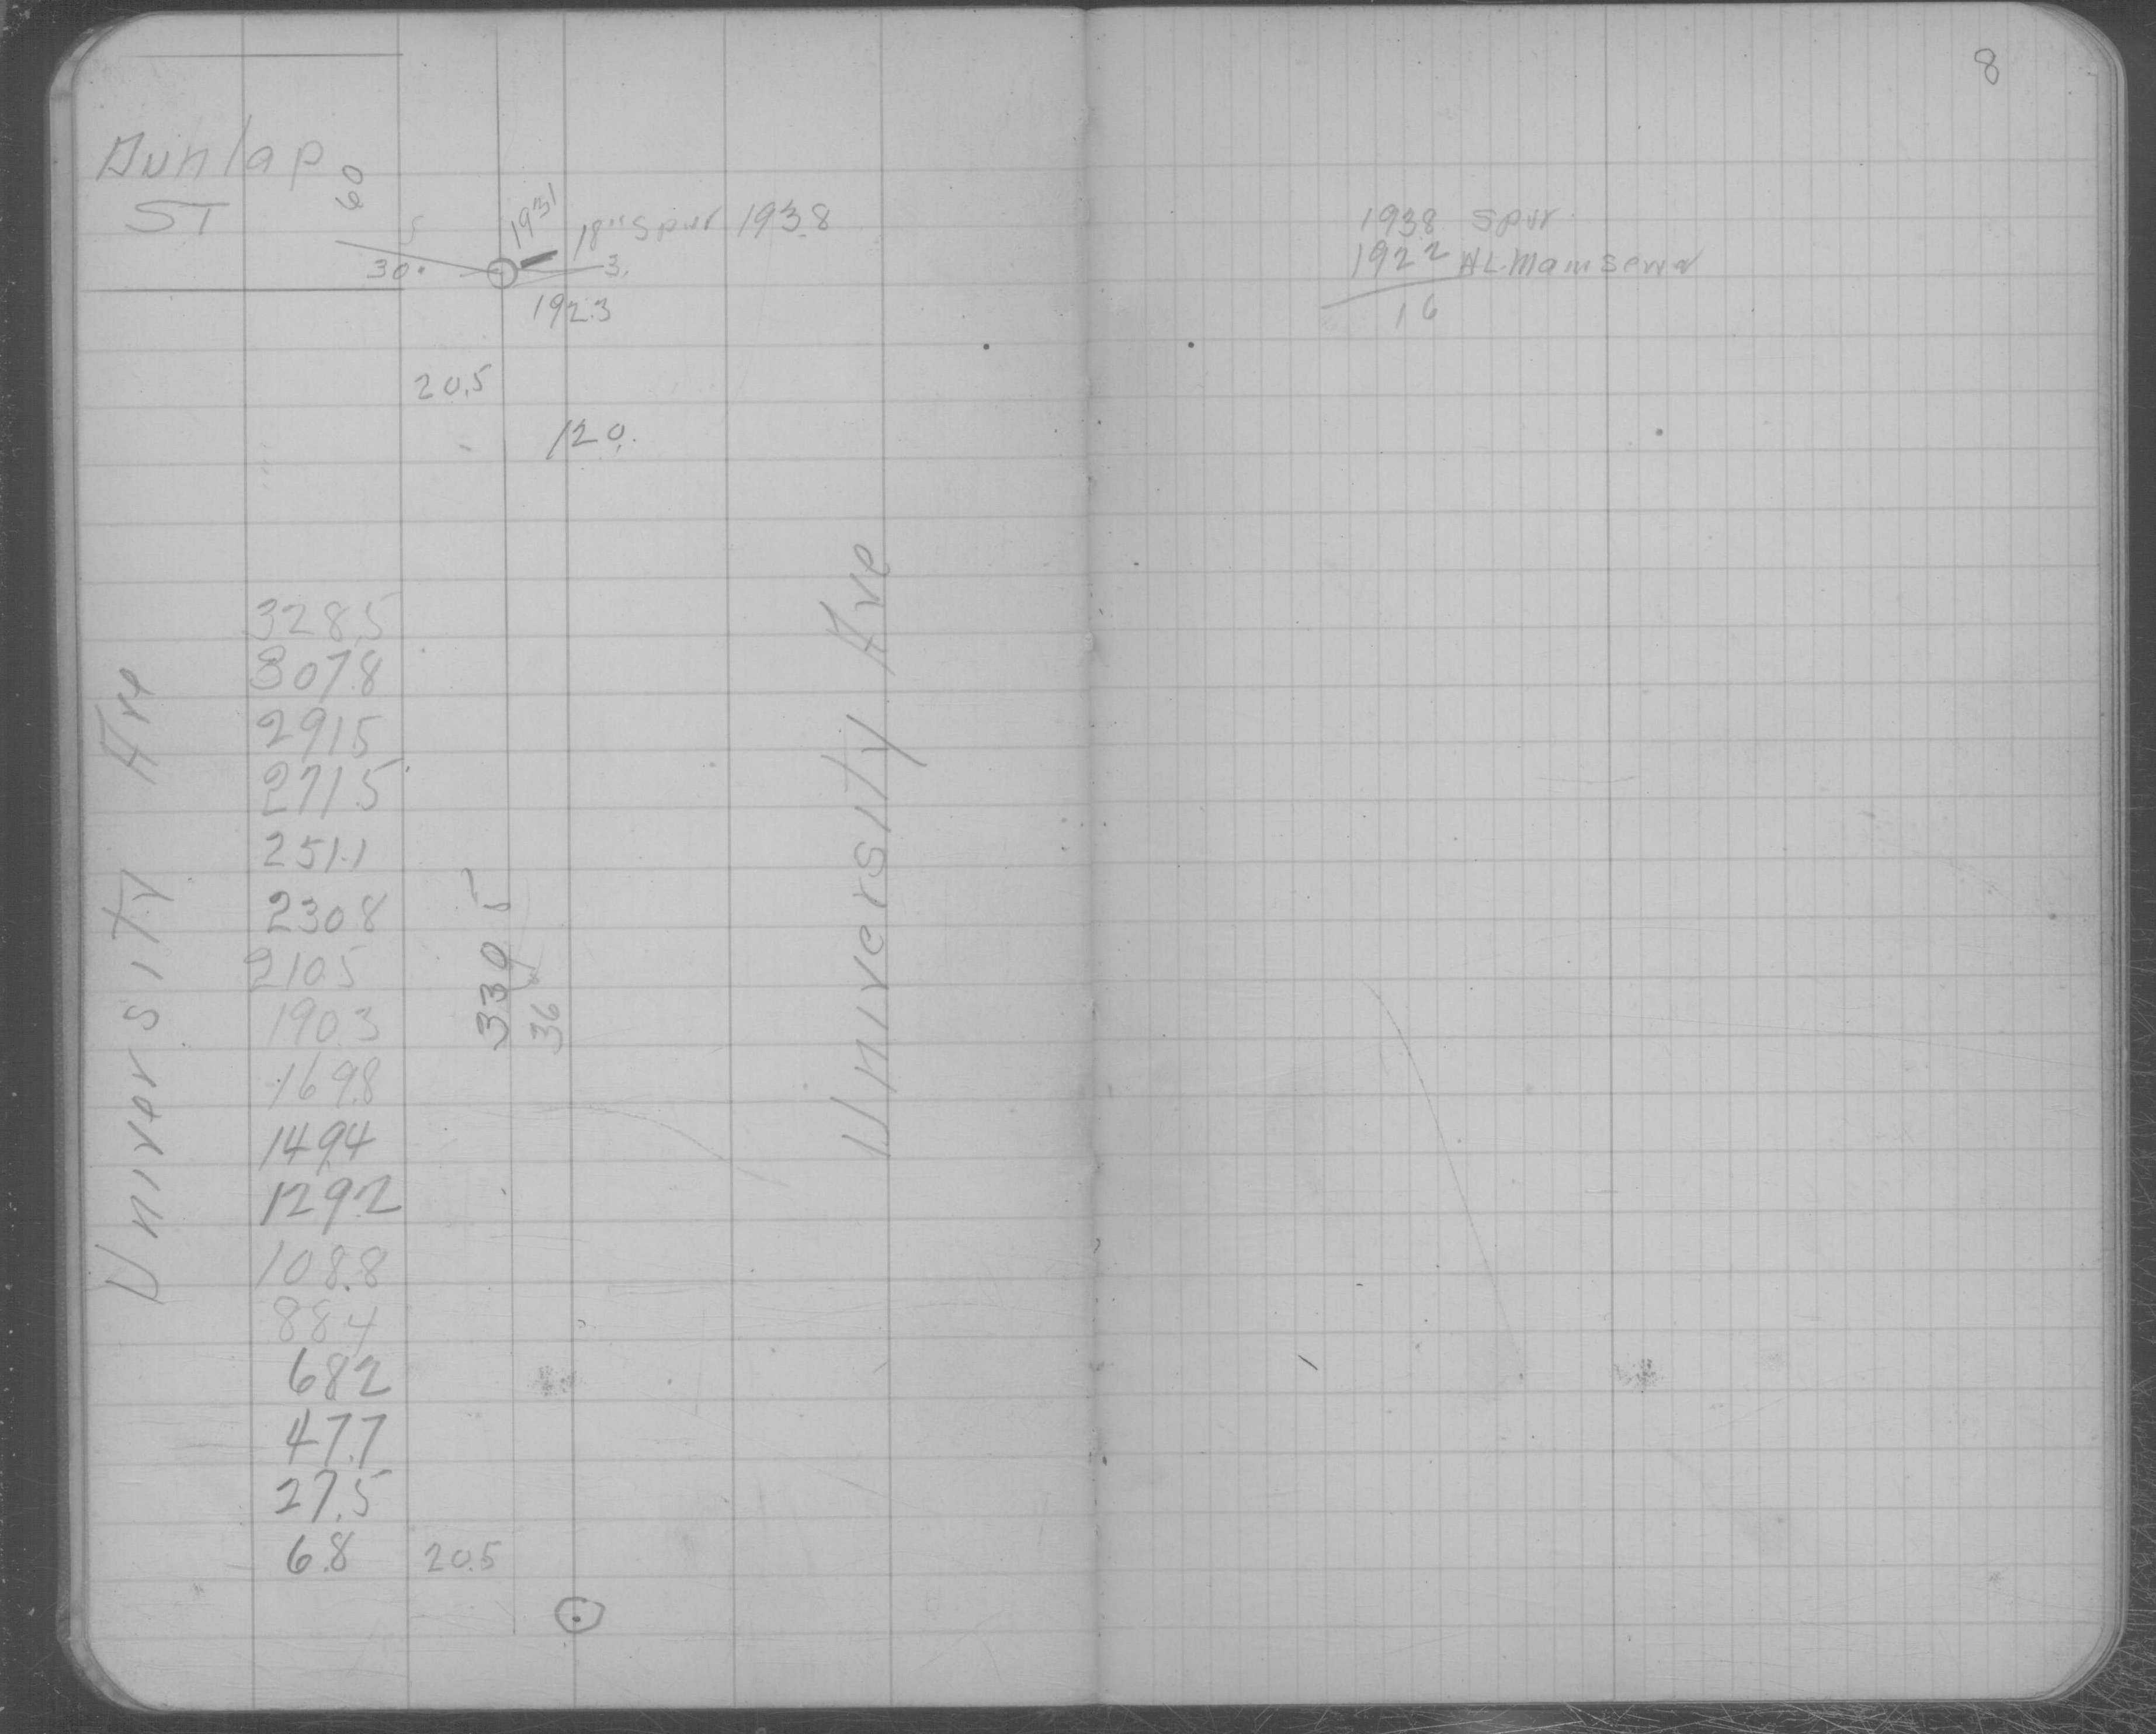 8
Dunlap
ST
60
S
30.
1931
18" Spur 193.8
3.
192.3
20.5
120.
University Ave
328.5
307.8
291.5
271.5
251.1
230.8
210.5
190.3
169.8
149.4
129.2
108.8
88.4
68.2
47.7
27.5
6.8 20.5
339
36
University Ave
1938 Spur
1922 HL Main Sewer
16